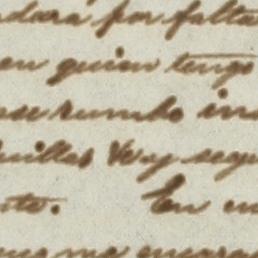 dara por falta
en quien tengo
ese rumbo in
uillas Voy segu
nte. En u